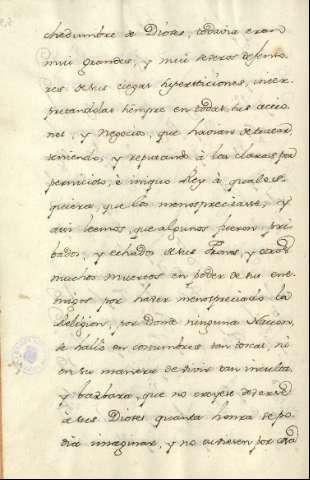 chedumbre de Dioses, todavia eran
mui grandes, y mui severos defenso
res de sus ciegas supersticiones, inter
pretandolas siempre en todas sus accio
nes, y Negocios, que havian de
y reputando à las claras por
pernicioso, è iniquo Rey à qualesq.
quiera, que los menospreciase, y
aun leemos que algunos fueron pri
bados, y echados de sus Tronos, y otros
muchos muertos en poder de sus ene
migos por haver menospreciado la
Religion, por donde ninguna Nacion,
se hallò en costumbres tan toscas, ni
en su manera de vivir tan inculta,
y barbara, que no creyese deverse
à sus Dioses quanta honra se po
dia imaginar, y no tuviesen por